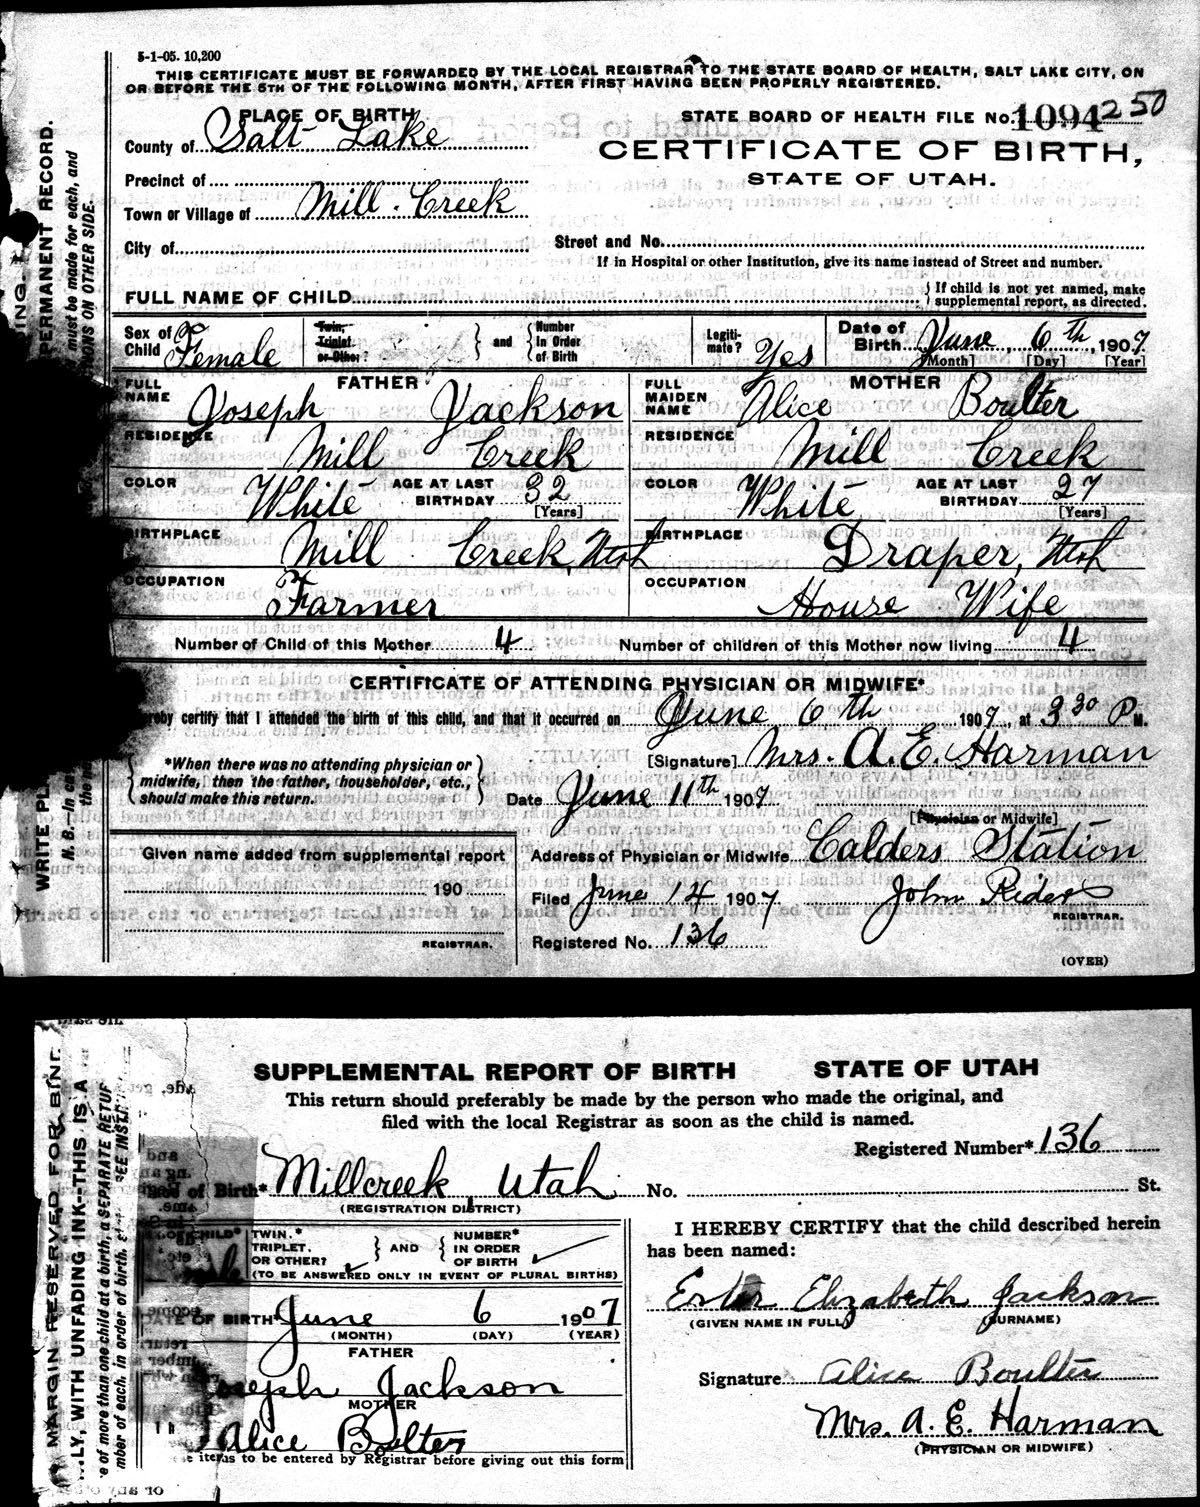 5-1-05. 10,200
THIS CERTIFICATE MUST BE FORWARDED BY THE LOCAL REGISTRAR TO THE STATE BOARD OF HEALTH, SALT LAKE CITY, ON
OR BEFORE THE 5TH OF THE FOLLOWING MONTH, AFTER FIRST HAVING BEEN PROPERLY REGISTERED.
PLACE OF BIRTH
County of Salt Lake
Precinct of
Town or Village of Mill Creek
City of
STATE BOARD OF HEALTH FILE No. 1094 250
CERTIFICATE OF BIRTH,
STATE OF UTAH.
Street and No.
If in Hospital or other Institution, give its name instead of Street and number.
FULL NAME OF CHILD
{ If child is not yet named, make
supplemental report, as directed.
Sex of Child Female
Twin, Triplet, or Other? } and { Number in Order of Birth
Legitimate? Yes
Date of Birth June 6th, 1907
[Month] [Day] [Year]
FATHER
FULL NAME Joseph Jackson
RESIDENCE Mill Creek
COLOR White AGE AT LAST BIRTHDAY 32 [Years]
BIRTHPLACE Mill Creek, Utah
OCCUPATION Farmer
MOTHER
FULL MAIDEN NAME Alice Boulter
RESIDENCE Mill Creek
COLOR White AGE AT LAST BIRTHDAY 27 [Years]
BIRTHPLACE Draper, Utah
OCCUPATION House Wife
Number of Child of this Mother 4 Number of children of this Mother now living 4
CERTIFICATE OF ATTENDING PHYSICIAN OR MIDWIFE*
reby certify that I attended the birth of this child, and that it occurred on June 6th 1907, at 3 30 P M.
*When there was no attending physician or
midwife, then the father, householder, etc.,
should make this return.
[Signature] Mrs. A. E. Harman
Date June 11th 1907
[Physician or Midwife]
Given name added from supplemental report
190
REGISTRAR.
Address of Physician or Midwife Calders Station
Filed June 14 1907 John Rider
REGISTRAR.
Registered No. 136
(OVER)
WRITE PL
PERMANENT RECORD.
N. B.—In cas
must be made for each, and
IONS ON OTHER SIDE.
SUPPLEMENTAL REPORT OF BIRTH STATE OF UTAH
This return should preferably be made by the person who made the original, and
filed with the local Registrar as soon as the child is named.
Registered Number* 136
of Birth* Millcreek, Utah No. St.
(REGISTRATION DISTRICT)
CHILD* TWIN.* TRIPLET. OR OTHER? } AND { NUMBER* IN ORDER OF BIRTH
(TO BE ANSWERED ONLY IN EVENT OF PLURAL BIRTHS)
DATE OF BIRTH* June 6 1907
(MONTH) (DAY) (YEAR)
FATHER
oseph Jackson
MOTHER
Alice Boulter
items to be entered by Registrar before giving out this form
I HEREBY CERTIFY that the child described herein
has been named:
Ester Elizabeth Jackson
(GIVEN NAME IN FULL) (SURNAME)
Signature Alice Boulter
Mrs. A. E. Harman
(PHYSICIAN OR MIDWIFE)
MARGIN RESERVED FOR BIND
LY, WITH UNFADING INK--THIS IS A
e of more than one child at a birth, a SEPARATE RETUR
mber of each, in order of birth.